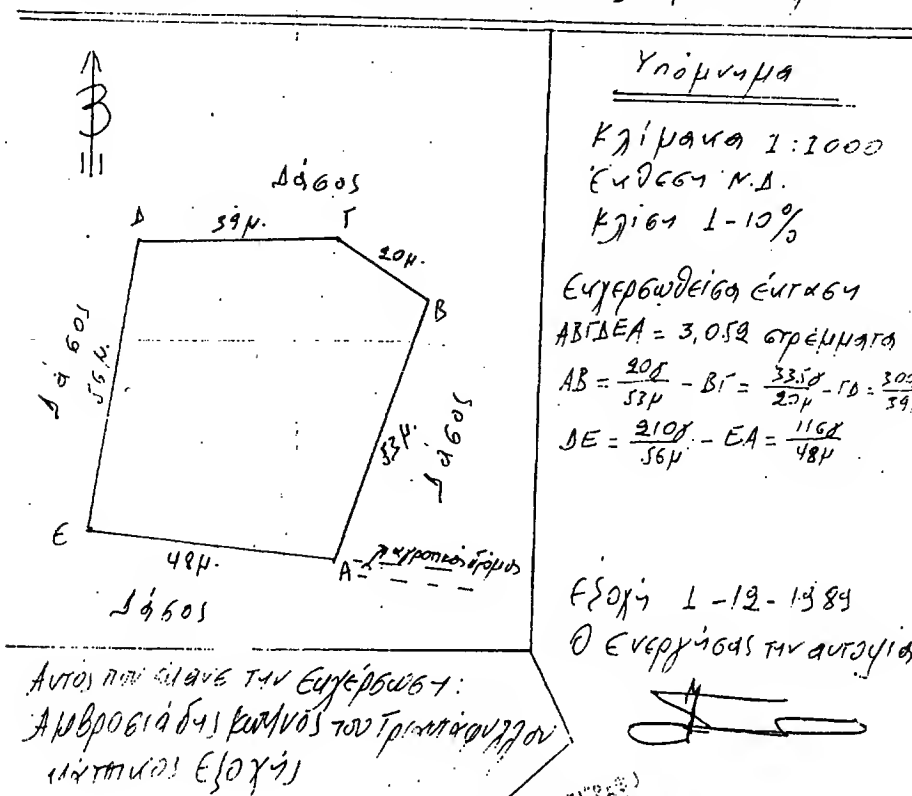 Β
Δάσος
Δ
39μ.
Γ
20μ.
Β
Δάσος
56μ.
53μ.
Δάσος
Ε
48μ.
Α
αγροτικός δρόμος
Δάσος
Υπόμνημα
Κλίμακα 1:1000
Έκθεση Ν.Δ.
Κλίση 1-10%
Εκχερσωθείσα έκταση
ΑΒΓΔΕΑ = 3,052 στρέμματα
ΑΒ = 20γ/53μ - ΒΓ = 335γ/20μ - ΓΔ =
ΔΕ = 210γ/56μ - ΕΑ = 116γ/48μ
Εξοχή 1-12-1989
Ο ενεργήσας την αυτοψία
Αυτός που έκανε την εκχέρσωση:
Αμβροσιάδης Κων/νος του Τριαντάφυλλου
κάτοικος Εξοχής